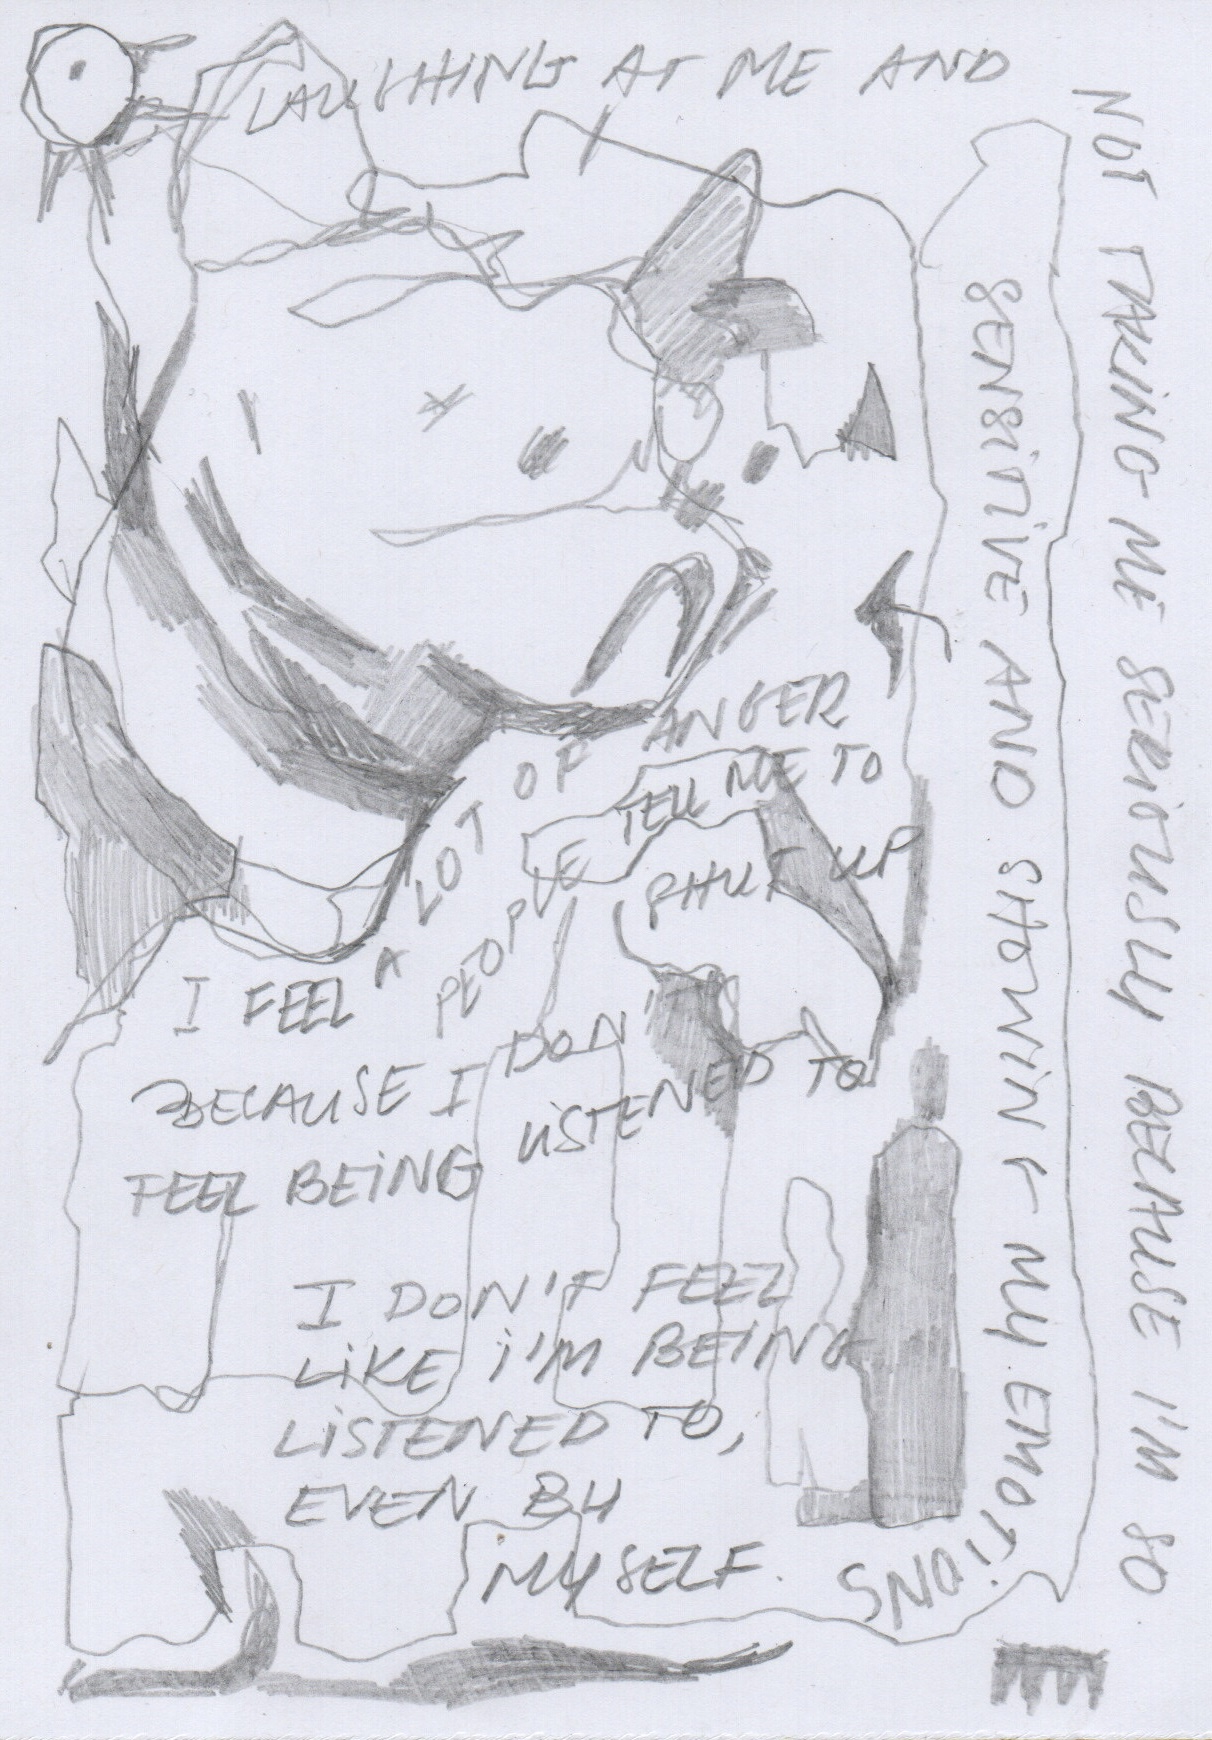 I FEEL A LOT OF ANGER
BECAUSE I DON
FEEL BEING LISTENED TO
PEOPLE TELL ME TO
SHUT UP
LAUGHING AT ME AND
NOT TAKING ME SERIOUSLY BECAUSE I'M SO
SENSITIVE AND SHOWING MY EMOTIONS
I DON'T FEEL
LIKE I'M BEING
LISTENED TO,
EVEN BY
MYSELF.